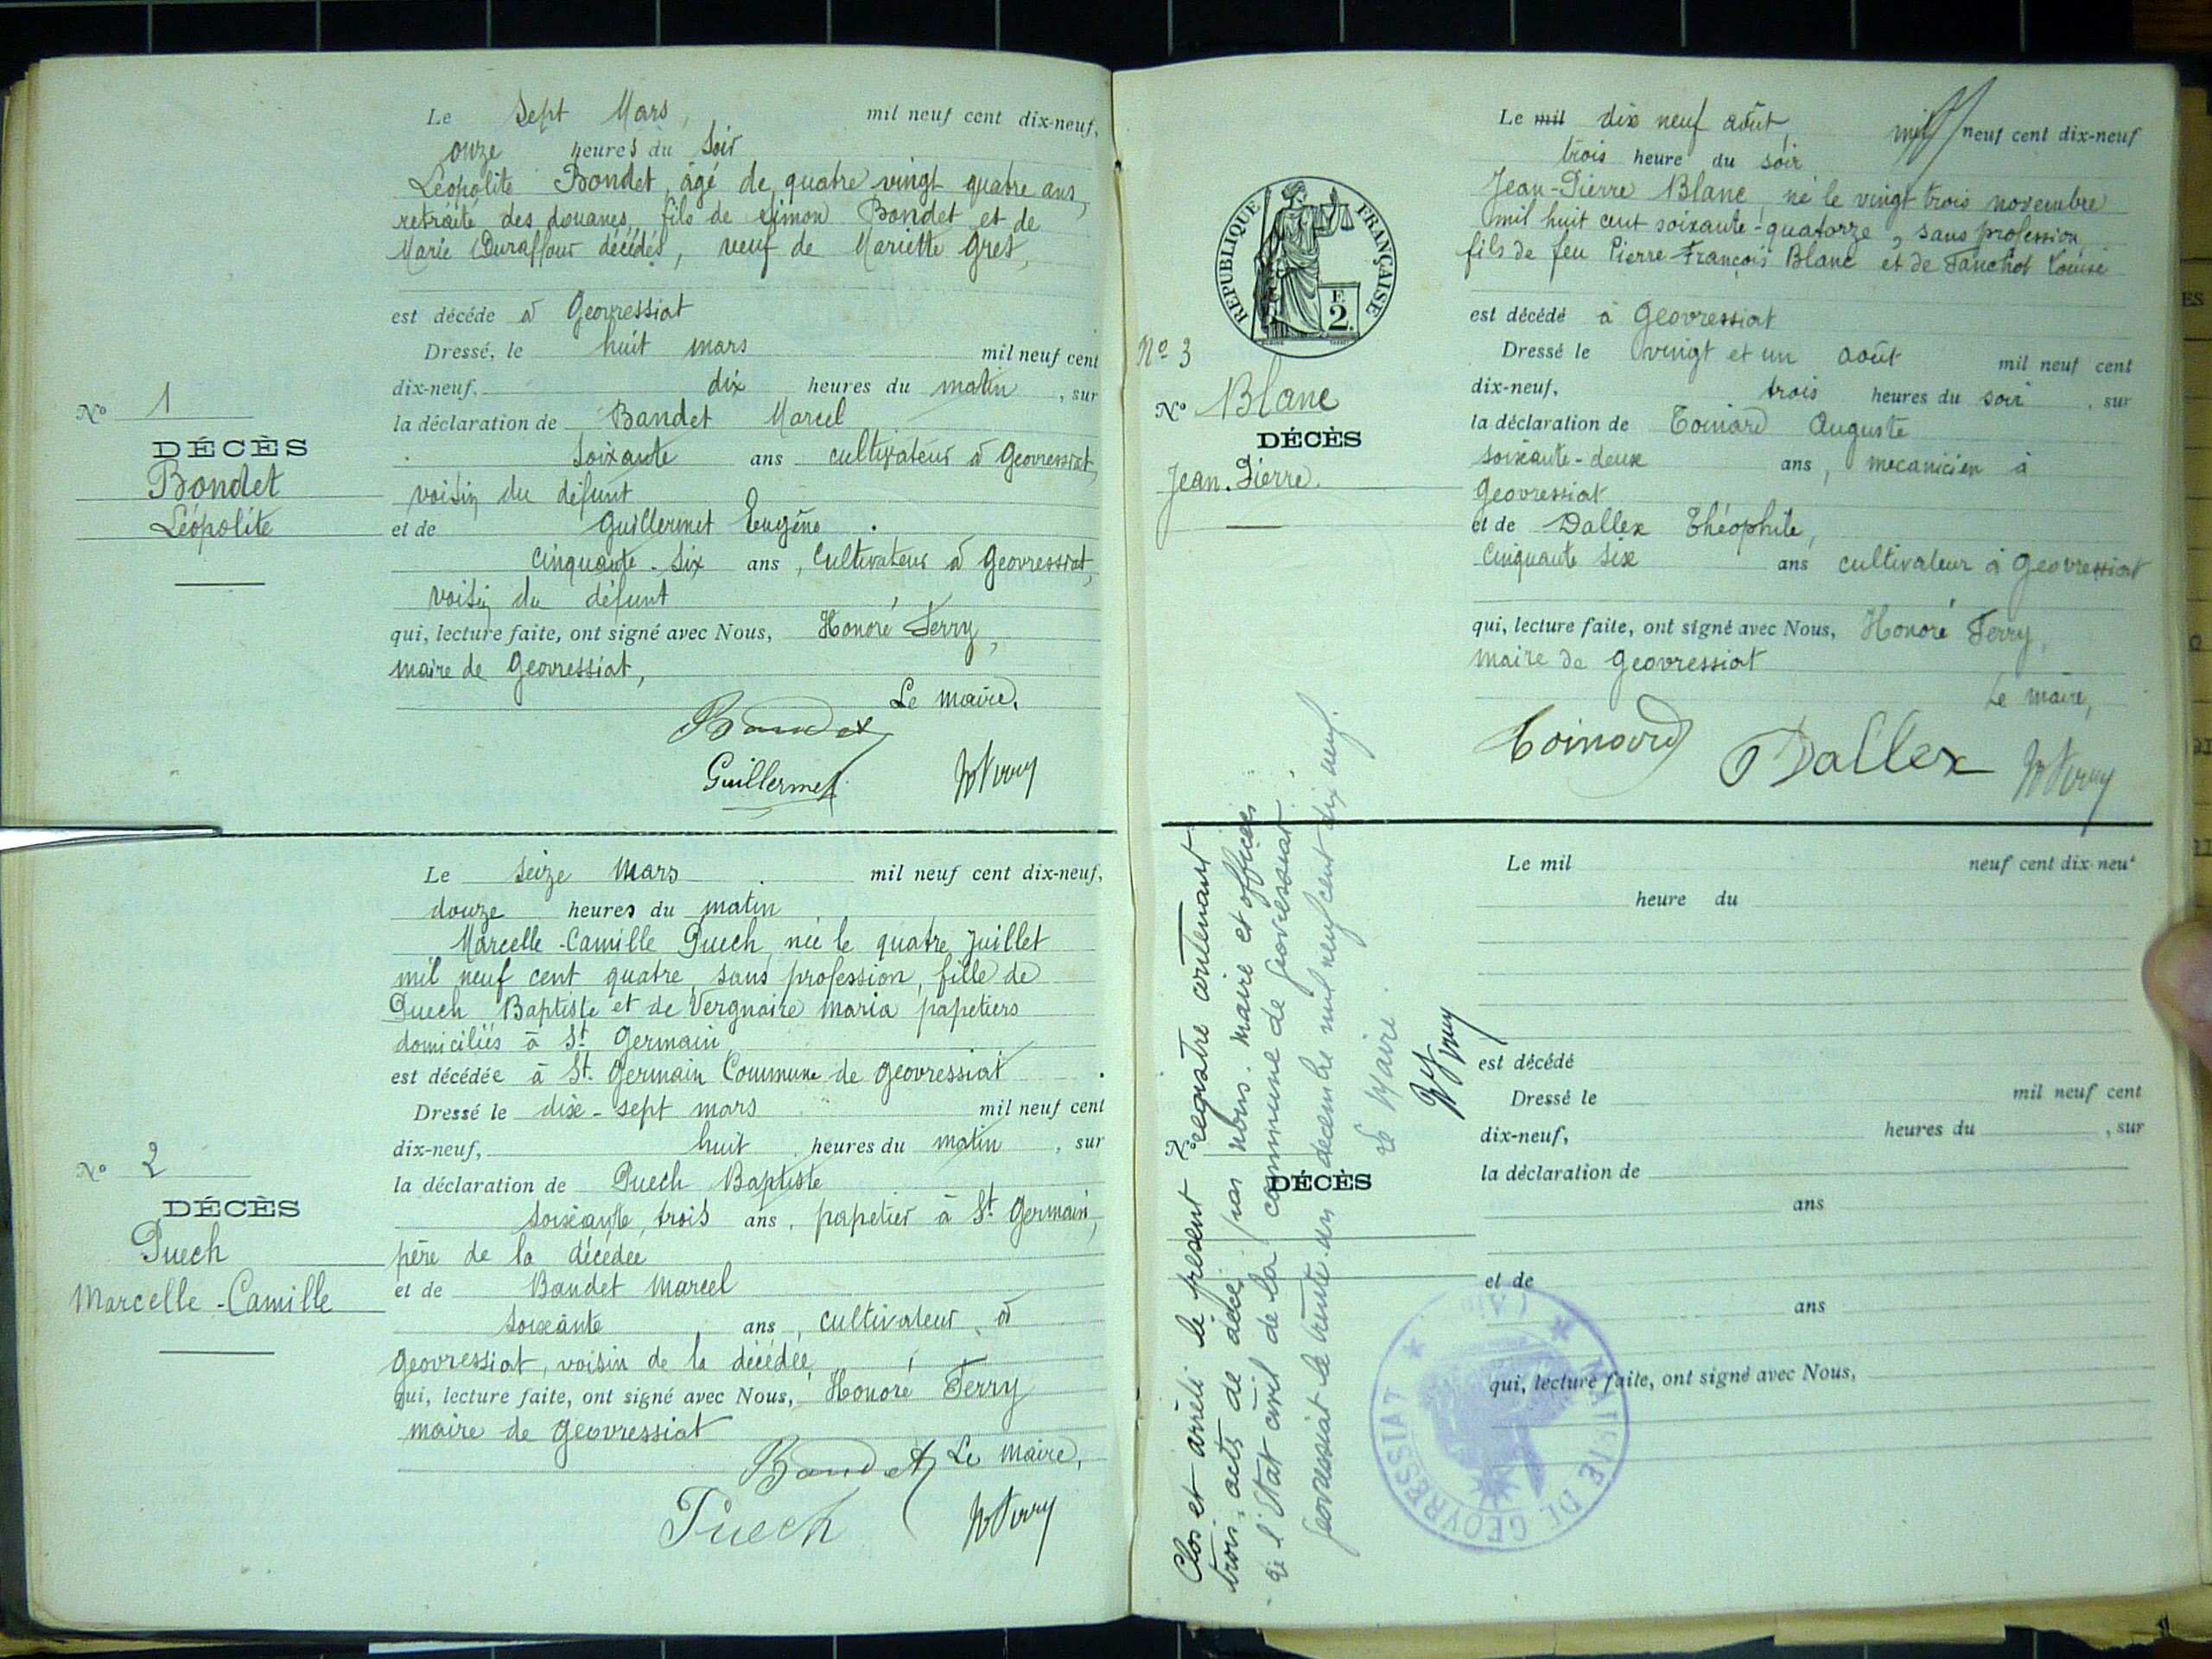 Le sept Mars, mil neuf cent dix-neuf,
onze heures du soir
Léopolite Bondet, âgé de quatre vingt quatre ans,
retraité des douanes, fils de Simon Bondet et de
Marie Duraffour décédés, veuf de Mariette Gres,
est décéde à Geovressiat
Dressé, le huit mars mil neuf cent
dix-neuf, dix heures du matin, sur
la déclaration de Bandet Marcel
soixante ans cultivateur à Geovressiat,
voisin du défunt
et de Guillermet Eugène
cinquante-six ans, cultivateur à Geovressiat,
voisin du défunt
qui, lecture faite, ont signé avec Nous, Honoré Ferry,
maire de Geovressiat,
Le maire,
Baudet
Guillermet HFerry
No 1
DÉCÈS
Bondet
Léopolite
Le seize Mars mil neuf cent dix-neuf,
douze heures du matin
Marcelle-Camille Puech, née le quatre Juillet
mil neuf cent quatre, sans profession, fille de
Puech Baptiste et de Vergnaire Maria papetiers
domiciliés à St Germain
est décédée à St. Germain Commune de Geovressiat
Dressé le dix-sept mars mil neuf cent
dix-neuf, huit heures du matin, sur
la déclaration de Puech Baptiste
soixante trois ans, papetier à St Germain,
père de la décédée
et de Baudet Marcel
soixante ans, cultivateur, à
Geovressiat, voisin de la décédée,
qui, lecture faite, ont signé avec Nous, Honoré Ferry
maire de Geovressiat
Baudet Le maire,
Puech HFerry
No 2
DÉCÈS
Puech
Marcelle-Camille
Le mil dix neuf août, mil neuf cent dix-neuf
trois heure du soir
Jean-Pierre Blanc, né le vingt trois novembre
mil huit cent soixante-quatorze, sans profession
fils de feu Pierre François Blanc et de Fanchot Louise
est décédé à Geovressiat
Dressé le vingt et un août mil neuf cent
dix-neuf, trois heures du soir, sur
la déclaration de Coinard Auguste
soixante-deux ans, mecanicien à
Geovressiat
et de Dallex Théophile,
cinquante six ans cultivateur à Geovressiat
qui, lecture faite, ont signé avec Nous, Honoré Ferry,
maire de Geovressiat
Le maire,
Coinard Dallex HFerry
REPUBLIQUE FRANÇAISE
F.
2.
No 3
No Blanc
DÉCÈS
Jean-Pierre.
Clos et arrêté le présent registre contenant
trois actes de décès par nous, maire et officier
de l'état civil de la commune de Geovressiat
Geovressiat le trente un decembre mil neuf cent dix neuf.
Le Maire.
HFerry
No
DÉCÈS
Le mil neuf cent dix-neuf
heure du
est décédé
Dressé le mil neuf cent
dix-neuf, heures du , sur
la déclaration de
ans
et de
ans
qui, lecture faite, ont signé avec Nous,
MAIRIE DE GEOVRESSIAT
(AIN)